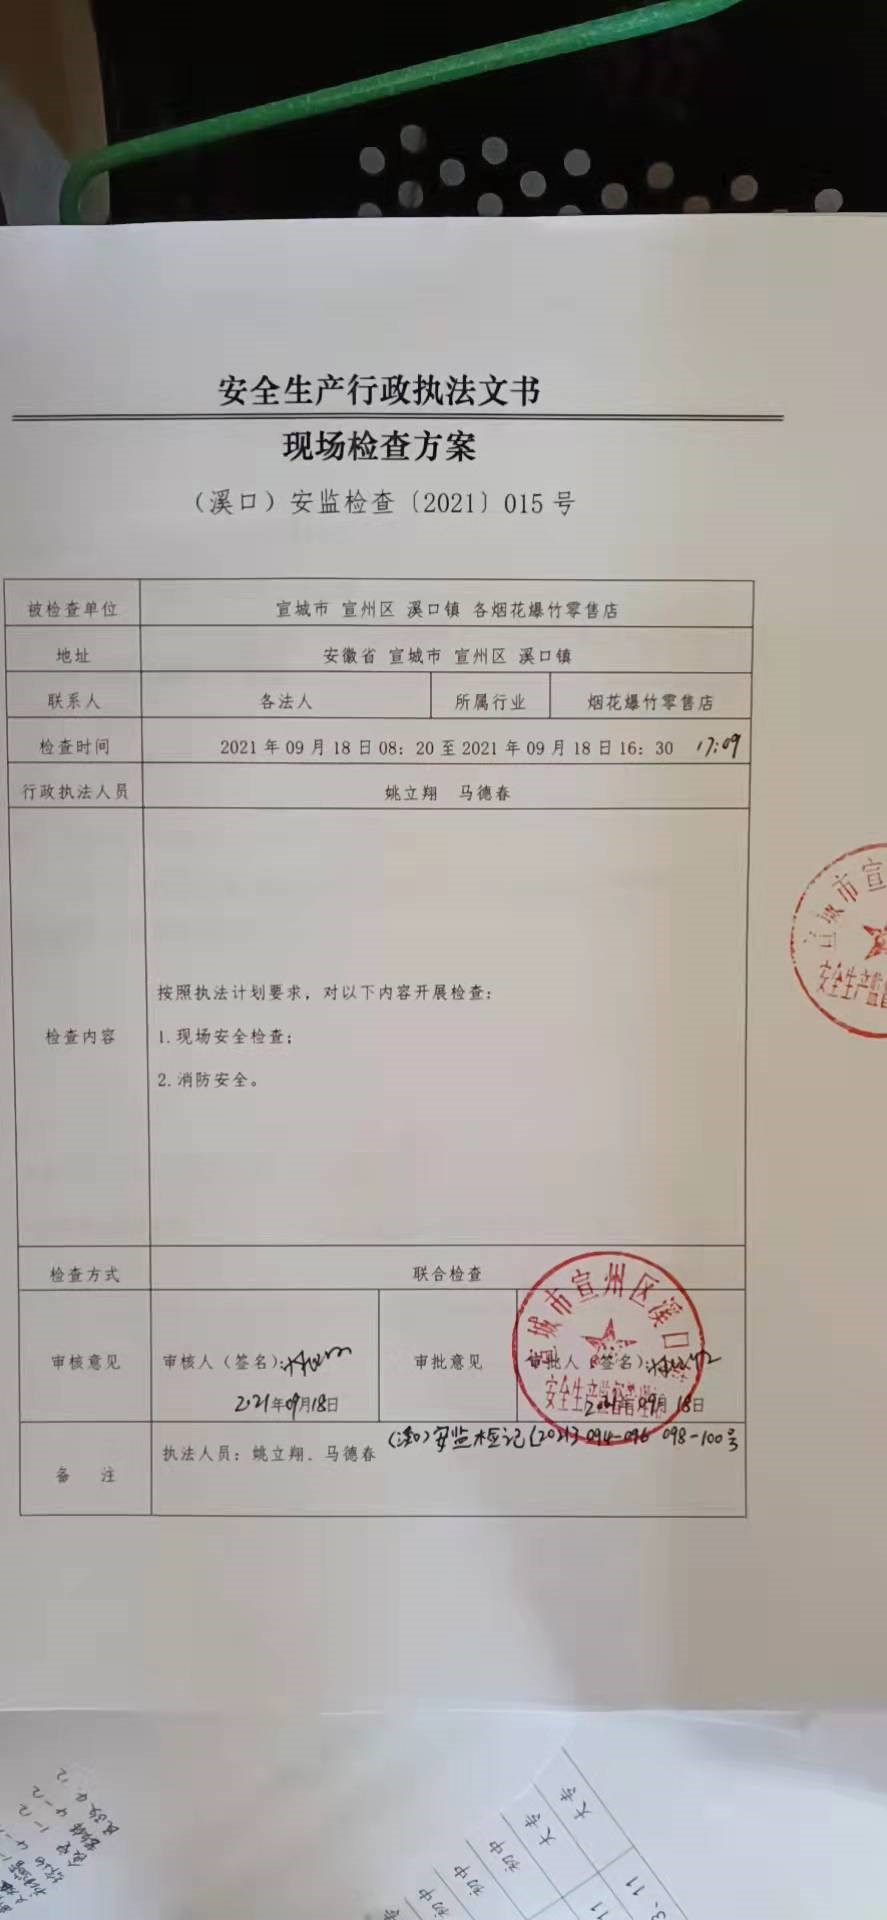 安全生产行政执法文书
现场检查方案
（溪口）安监检查〔2021〕015 号
被检查单位 宣城市 宣州区 溪口镇 各烟花爆竹零售店
地址 安徽省 宣城市 宣州区 溪口镇
联系人 各法人 所属行业 烟花爆竹零售店
检查时间 2021 年 09 月 18 日 08：20 至 2021 年 09 月 18 日 16：30 17:09
行政执法人员 姚立翔 马德春
检查内容
按照执法计划要求，对以下内容开展检查：
1.现场安全检查；
2.消防安全。
检查方式 联合检查
审核意见 审核人（签名）：
2021年09月18日
审批意见 审批人（签名）：
2021年09月18日
备 注 执法人员：姚立翔、马德春 （溪口）安监检记〔2021〕094-096 098-100号
宣城市宣州区溪口镇
安全生产监督管理
宣城市宣
安全生产监
大专
大专
初中
初中
初中
3.11
11